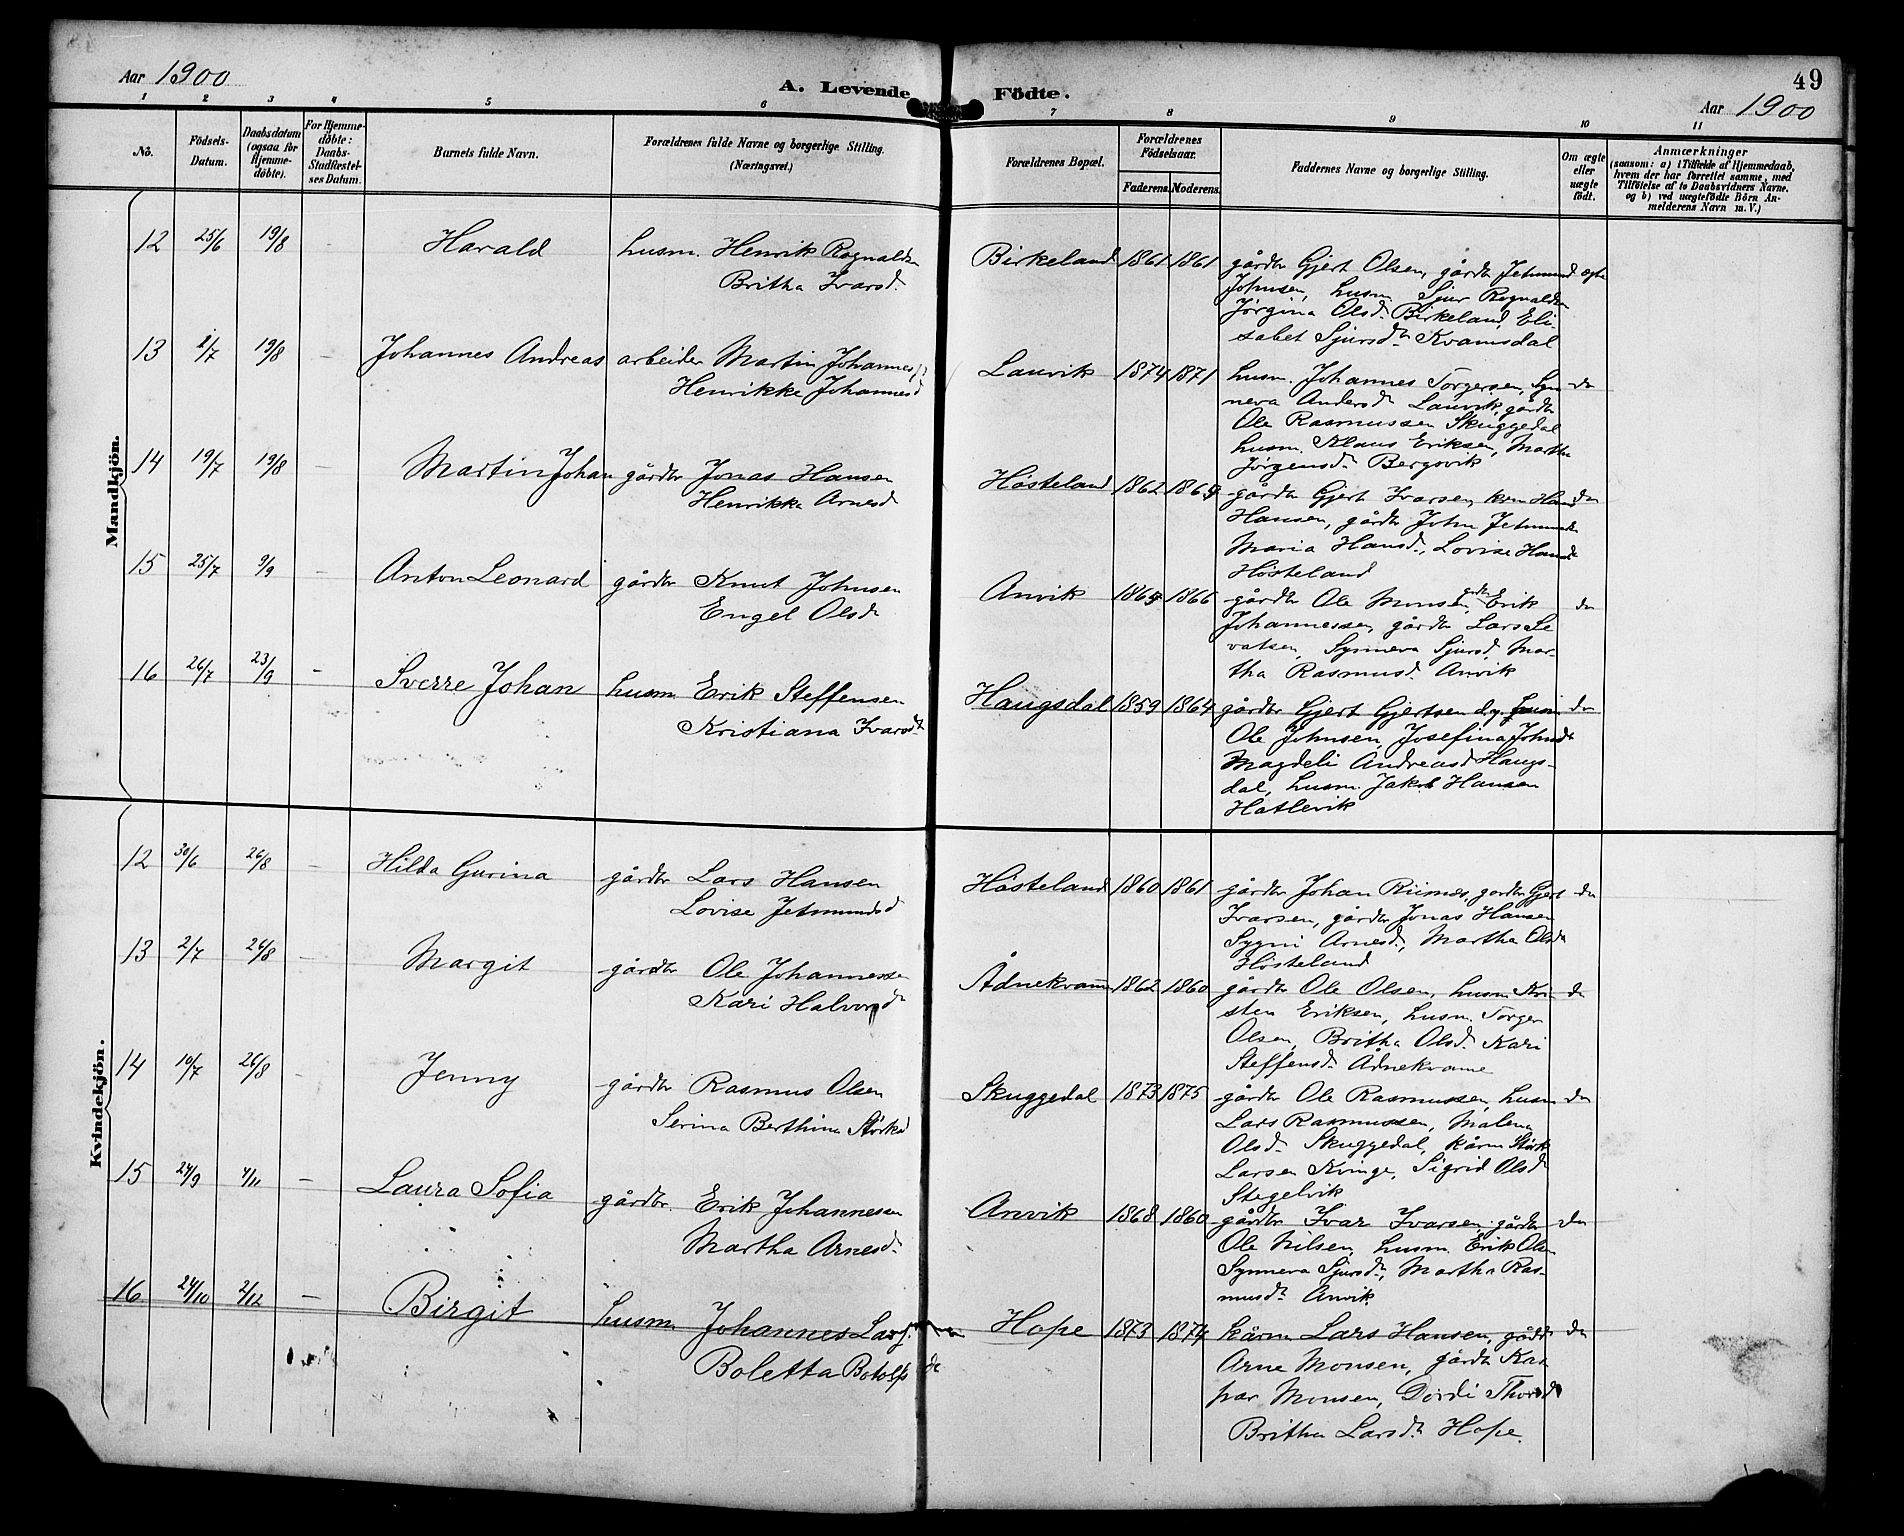 Aar 1900
A. Levende Födte.
49
Aar 1900
1 2 3 4 5 6 7 8 9 10 11
No.
Födsels-
Datum.
Daabsdatum
(ogsaa for
Hjemme-
döbte).
For Hjemme-
döbte:
Daabs-
Stadfæstel-
ses Datum.
Barnets fulde Navn.
Forældrenes fulde Navne og borgerlige Stilling.
(Næringsvei.)
Forældrenes Bopæl.
Forældrenes
Födselsaar.
Faderens. Moderens.
Faddernes Navne og borgerlige Stilling.
Om ægte
eller
uægte
födt.
Anmærkninger
(saasom: a) i Tilfælde af Hjemmedaab,
hvem der har forrettet samme, med
Tilföielse af to Daabsvidners Navne.
og b) ved uægtefödte Börn An-
melderens Navn m. V.)
Mandkjön.
12 25/6 19/8 - Harald husm. Henrik Rognaldsn
Britha Ivarsd.
Birkeland 1861 1861 gårdbr Gjert Olsen, gårdbr Jetmund ægte
Johnsen, husm Sjur Rognaldsn
Jørgina Olsd. Birkeland, Eli-
sabet Sjursdr. Kvamsdal
13 1/7 19/8 - Johannes Andreas arbeider Martin Johannes
Henrikke Johannesd
Lauvik 1874 1871 husm. Johannes Torgersen, Syn- do
neva Andersdr Lauvik, gårdbr
Ole Rasmussen Skuggedal
husm. Klaus Eriksen, Martha
Jörgensdr. Bergsvik
14 19/7 19/8 - Martin Johan gårdbr Jonas Hansen
Henrikka Arnesd
Hösteland 1862 1865 gårdbr Gjert Ivarsen, Hans do
Hansen, gårdbr John Jetmunds
Maria Hansd., Lovise Hansdr
Hösteland
15 25/7 9/9 - Anton Leonard gårdbr Knut Johnsen
Engel Olsdr
Anvik 1865 1866 gårdbr Ole Monsen, gårdbr Erik do
Johannessen, gårdbr Lars Le
vatsen, Synneva Sjursd, Mar-
tha Rasmusd Anvik
16 26/7 23/9 - Sverre Johan husm Erik Steffensen
Kristiana Ivarsdtr
Haugsdal 1859 1864 gårdbr Gjert Gjertsen d.y. do
Ole Johnsen, Josefina Johnsdr
Magdeli Andreasd Haugs-
dal, husm. Jakob Hansen
Hatlevik
Kvindekjön.
12 30/6 26/8 - Hilda Gurina gårdbr Lars Hansen
Lovise Jetmundsd
Hösteland 1860 1861 gårdbr Johan Risnes, gardbr Gjert do
Ivarsen, gårdbr Jonas Hansen
Sygni Arnesd., Martha Olsdr
Hösteland
13 2/7 26/8 - Margit gårdbr Ole Johannesse
Kari Halvorsdr
Ådnekvamme 1862 1860 gårdbr Ole Olsen, husm Kri- do
sten Eriksen, husm. Torger
Olsen, Britha Olsd. Kari
Steffensdr. Ådnekvame
14 10/7 26/8 - Jenny gårdbr Rasmus Olsen
Serina Berthina Störksd
Skuggedal 1873 1875 gårdbr Ole Rasmussen, husm do
Lars Rasmussen, Malena
Olsd. Skuggedal, kårm Störk
Larsen Kvinge, Sigrid Olsdr
Stegelvik
15 24/9 4/11 - Laura Sofia gårdbr. Erik Johannesen
Martha Arnesd.
Anvik 1868 1860 gårdbr Ivar Ivarsen, gårdbr do
Ole Nilsen, husm. Erik Olsn
Synneva Sjursdr, Martha Ras-
musdr. Anvik
16 24/10 2/12 - Birgit husm Johannes Larsen
Boletta Botolfsdr
Hope 1873 1874 kårm Lars Hansen, gårdbr do
Arne Monsen, gårdbr Kas
par Monsen, Dordi Thorsdr
Britha Larsdr. Hope.